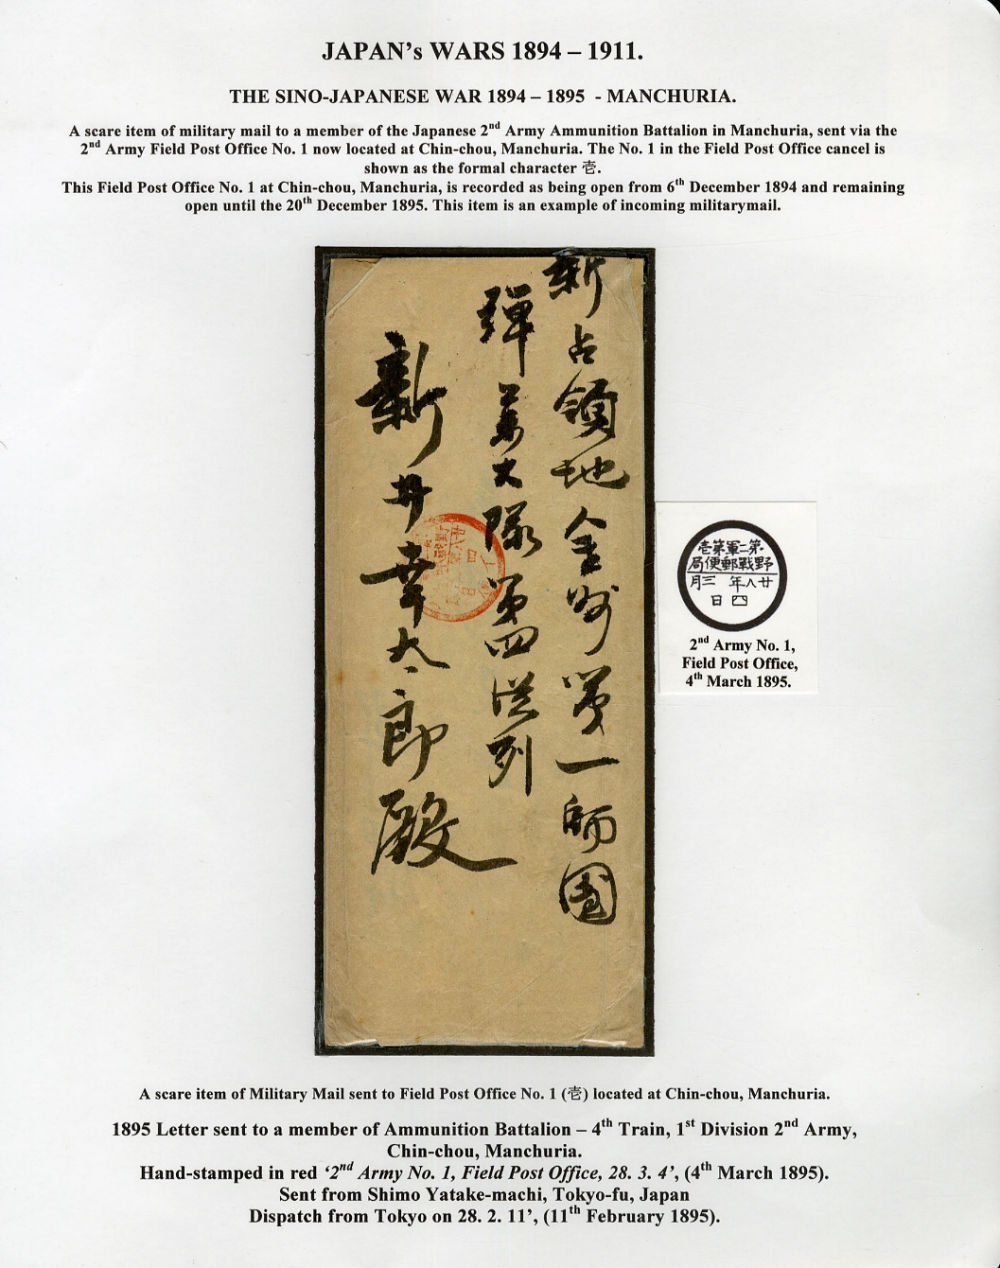 JAPAN's WARS 1894 – 1911.
THE SINO-JAPANESE WAR 1894 – 1895 - MANCHURIA.
A scare item of military mail to a member of the Japanese 2nd Army Ammunition Battalion in Manchuria, sent via the
2nd Army Field Post Office No. 1 now located at Chin-chou, Manchuria. The No. 1 in the Field Post Office cancel is
shown as the formal character 壱.
This Field Post Office No. 1 at Chin-chou, Manchuria, is recorded as being open from 6th December 1894 and remaining
open until the 20th December 1895. This item is an example of incoming militarymail.
新占領地金州第一師團
弾薬大隊第四縦列
新井幸太郎殿
第二軍第壱
野戦郵便局
廿八年 三月
四日
2nd Army No. 1,
Field Post Office,
4th March 1895.
A scare item of Military Mail sent to Field Post Office No. 1 (壱) located at Chin-chou, Manchuria.
1895 Letter sent to a member of Ammunition Battalion – 4th Train, 1st Division 2nd Army,
Chin-chou, Manchuria.
Hand-stamped in red ‘2nd Army No. 1, Field Post Office, 28. 3. 4’, (4th March 1895).
Sent from Shimo Yatake-machi, Tokyo-fu, Japan
Dispatch from Tokyo on 28. 2. 11’, (11th February 1895).